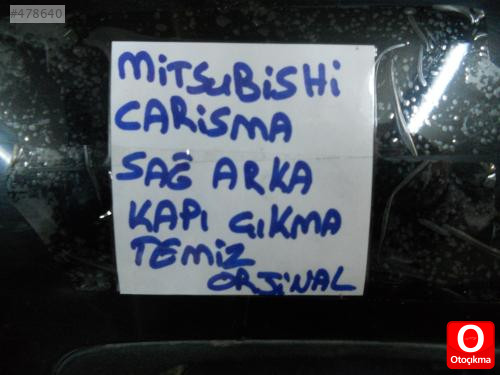 #478640
MİTSUBİSHİ
CARİSMA
SAĞ ARKA
KAPI ÇIKMA
TEMİZ
ORJİNAL
Otoçıkma